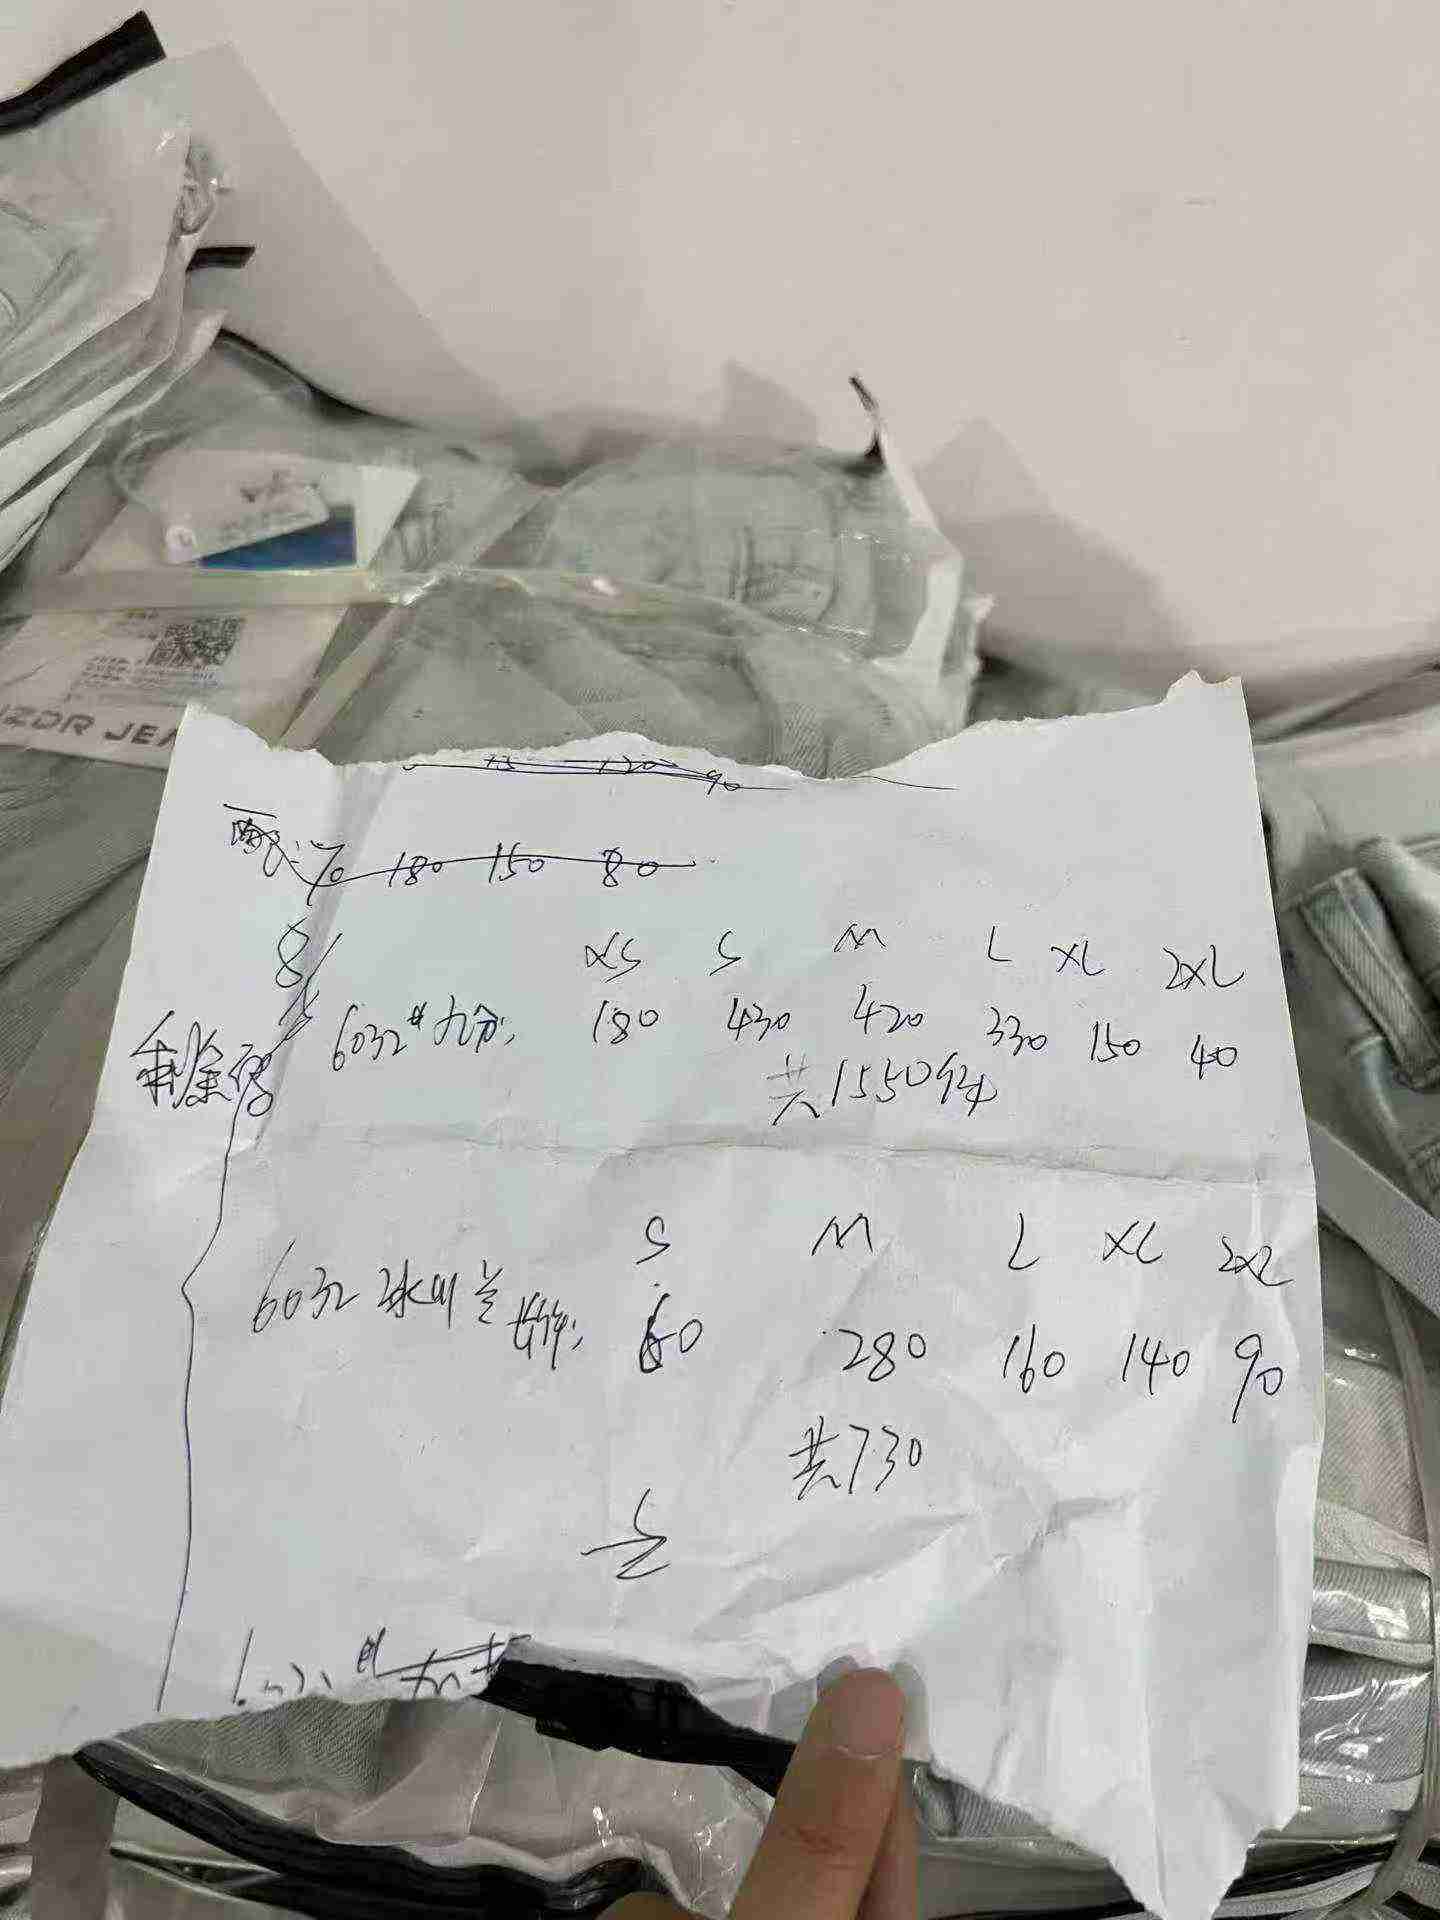 NZDR JEA
75 120 90
180 150 80
XS S M L XL 2XL
6032# 九分: 180 430 420 330 150 40
共1550件
S M L XL 2XL
6032 冰川兰 长件: 60 280 160 140 90
共730